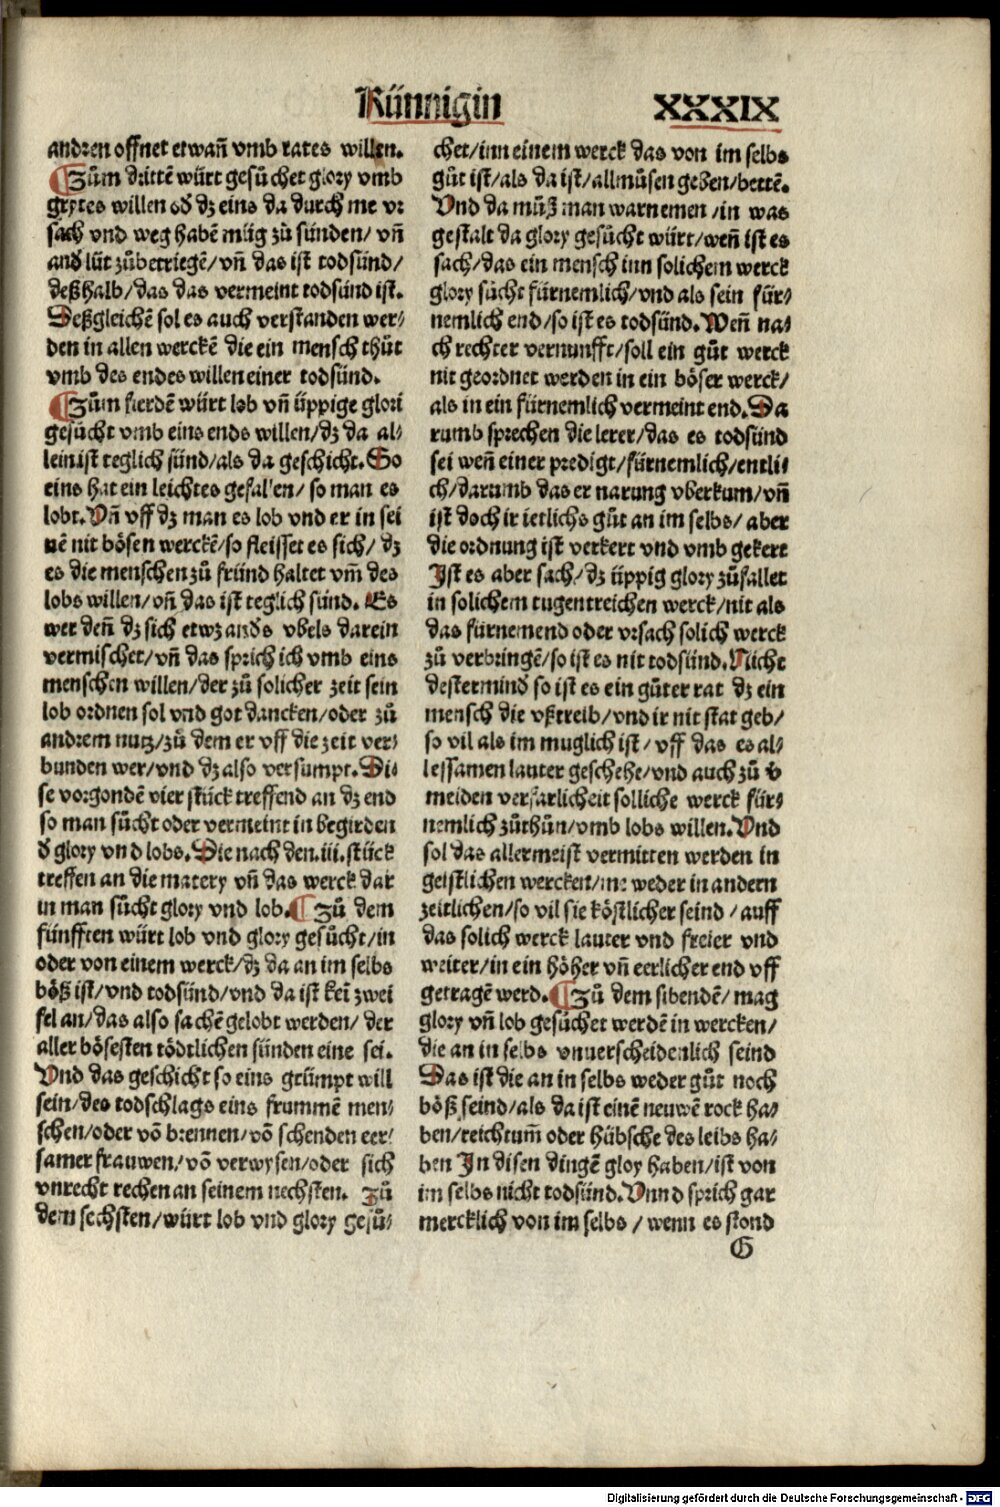 Künnigin
XXXIX
andren offnet etwañ vmb rates willen.
Zům drittē würt gesůchet glory vmb
gytes willen od dz eins da durch me vr
sach vnd weg habē müg zů sünden/ vñ
and lüt zůbetriegē/ vñ das ist todsünd/
deßhalb/das das vermeint todsünd ist.
Deßgleichē sol es auch verstanden wer/
den in allen werckē die ein mensch thůt
vmb des endes willen einer todsünd.
Zům fierdē würt lob vñ üppige glori
gesůcht vmb eins ends willen/dz da al/
lein ist teglich sünd/als da geschicht. So
eins hat ein leichtes gefallen/ so man es
lobt. Vñ vff dz man es lob vnd er in sei
nē nit bösen werckē/so fleisset es sich/ dz
es die menschen zů fründ haltet vm̄ des
lobs willen/vñ das ist teglich sünd. Es
wer deñ dz sich etwz anders vbels darein
vermischet/vñ das sprich ich vmb eins
menschen willen/der zů solicher zeit sein
lob ordnen sol vnd got dancken/oder zů
andrem nutz/zů dem er vff die zeit ver/
bunden wer/vnd dz also versumpt. Di/
se vorgondē vier stück treffend an dz end
so man sůcht oder vermeint in begirden
d glory vnd lobs. Die nach den .iii. stück
treffen an die matery vñ das werck dar
in man sůcht glory vnd lob. Zů dem
fünfften würt lob vnd glory gesůcht/in
oder von einem werck/dz da an im selbs
böß ist/vnd todsünd/vnd da ist kei͂ zwei
fel an/das also sachē gelobt werden/ der
aller bösesten tödtlichen sünden eine sei.
Vnd das geschicht so eins grümpt will
sein/des todschlags eins frummē men/
schen/oder vō brennen/vō schenden eer/
samer frauwen/vō verwysen/oder sich
vnrecht rechen an seinem nechsten. Zů
dem sechsten/würt lob vnd glory gesů/
chet/inn einem werck das von im selbs
gůt ist/als da ist/allmůsen geben/bettē.
Vnd da můß man warnemen/in was
gestalt da glory gesůcht würt/weñ ist es
sach/das ein mensch inn solichem werck
glory sůcht fürnemlich/vnd als sein für/
nemlich end/so ist es todsünd. Weñ na/
ch rechter vernunfft/soll ein gůt werck
nit geordnet werden in ein böser werck/
als in ein fürnemlich vermeint end. Da
rumb sprechen die lerer/das es todsünd
sei weñ einer predigt/fürnemlich/entli/
ch/darumb das er narung vberkum/vñ
ist doch ir ietlichs gůt an im selbs/ aber
die ordnung ist verkert vnd vmb gekert
Ist es aber sach/dz üppig glory zůfallet
in solichem tugentreichen werck/nit als
das fürnemend oder vrsach solich werck
zů verbringē/so ist es nit todsünd. Nicht
destermind so ist es ein gůter rat dz ein
mensch die vßtreib/vnd ir nit stat geb/
so vil als im muglich ist/ vff das es al/
lessamen lauter geschehe/vnd auch zů v
meiden verfarlicheit solliche werck für/
nemlich zůthůn/vmb lobs willen. Vnd
sol das allermeist vermitten werden in
geistlichen wercken/me weder in andern
zeitlichen/so vil sie köstlicher seind/auff
das solich werck lauter vnd freier vnd
weiter/in ein höher vñ eerlicher end vff
getragē werd. Zů dem sibendē/mag
glory vñ lob gesůchet werdē in wercken/
die an in selbs vnuerscheidenlich seind
Das ist die an in selbs weder gůt noch
böß seind/als da ist einē neuwē rock ha/
ben/reichtum̄ oder hübsche des leibs ha/
ben In disen dingē gloy haben/ist von
im selbs nicht todsünd. Vnnd sprich gar
mercklich von im selbs/ wenn es stond
G
Digitalisierung gefördert durch die Deutsche Forschungsgemeinschaft - DFG